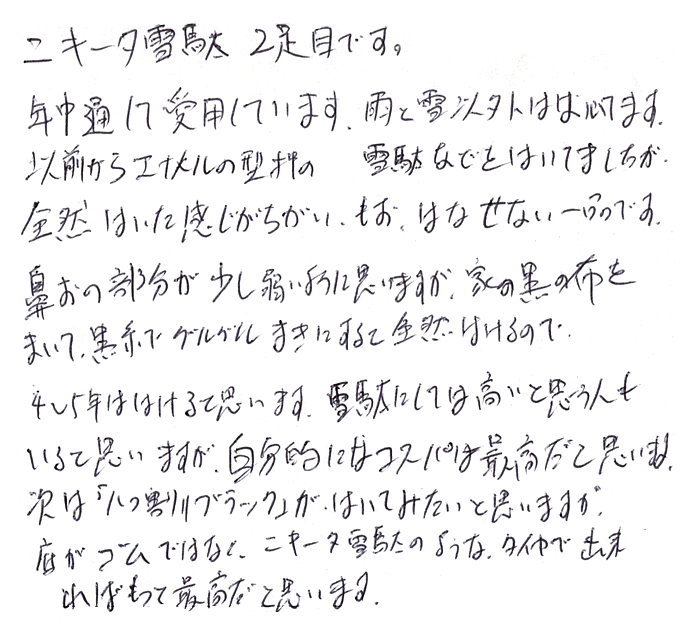 ニキータ雪駄 2足目です。
年中通して愛用しています、雨と雪以外はほぼはいてます。
以前からエナメルの型押の 雪駄などをはいてましたが、
全然はいた感じがちがい、もお、はなせない一品です。
鼻おの部分が少し弱いように思いますが、家の黒の布を
まいて、黒糸でグルグルまきにすると全然はけるので、
4、5年ははけると思います。雪駄にしては高いと思う人も
いると思いますが、自分的にはコスパは最高だと思います。
次は「八つ割りブラック」が、はいてみたいと思いますが、
底がゴムではなく、ニキータ雪駄のような、タイヤで出来
ればもって最高だと思います。